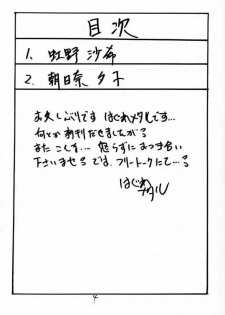 目次
1. 虹野沙希
2. 朝日奈夕子
お久しぶりです はぐれメタルです…
何とか新刊だせましたが3
またこしを… 怒らずにおつき合い
下さいませ3です。フリートークにて…3
はぐれメタル
4